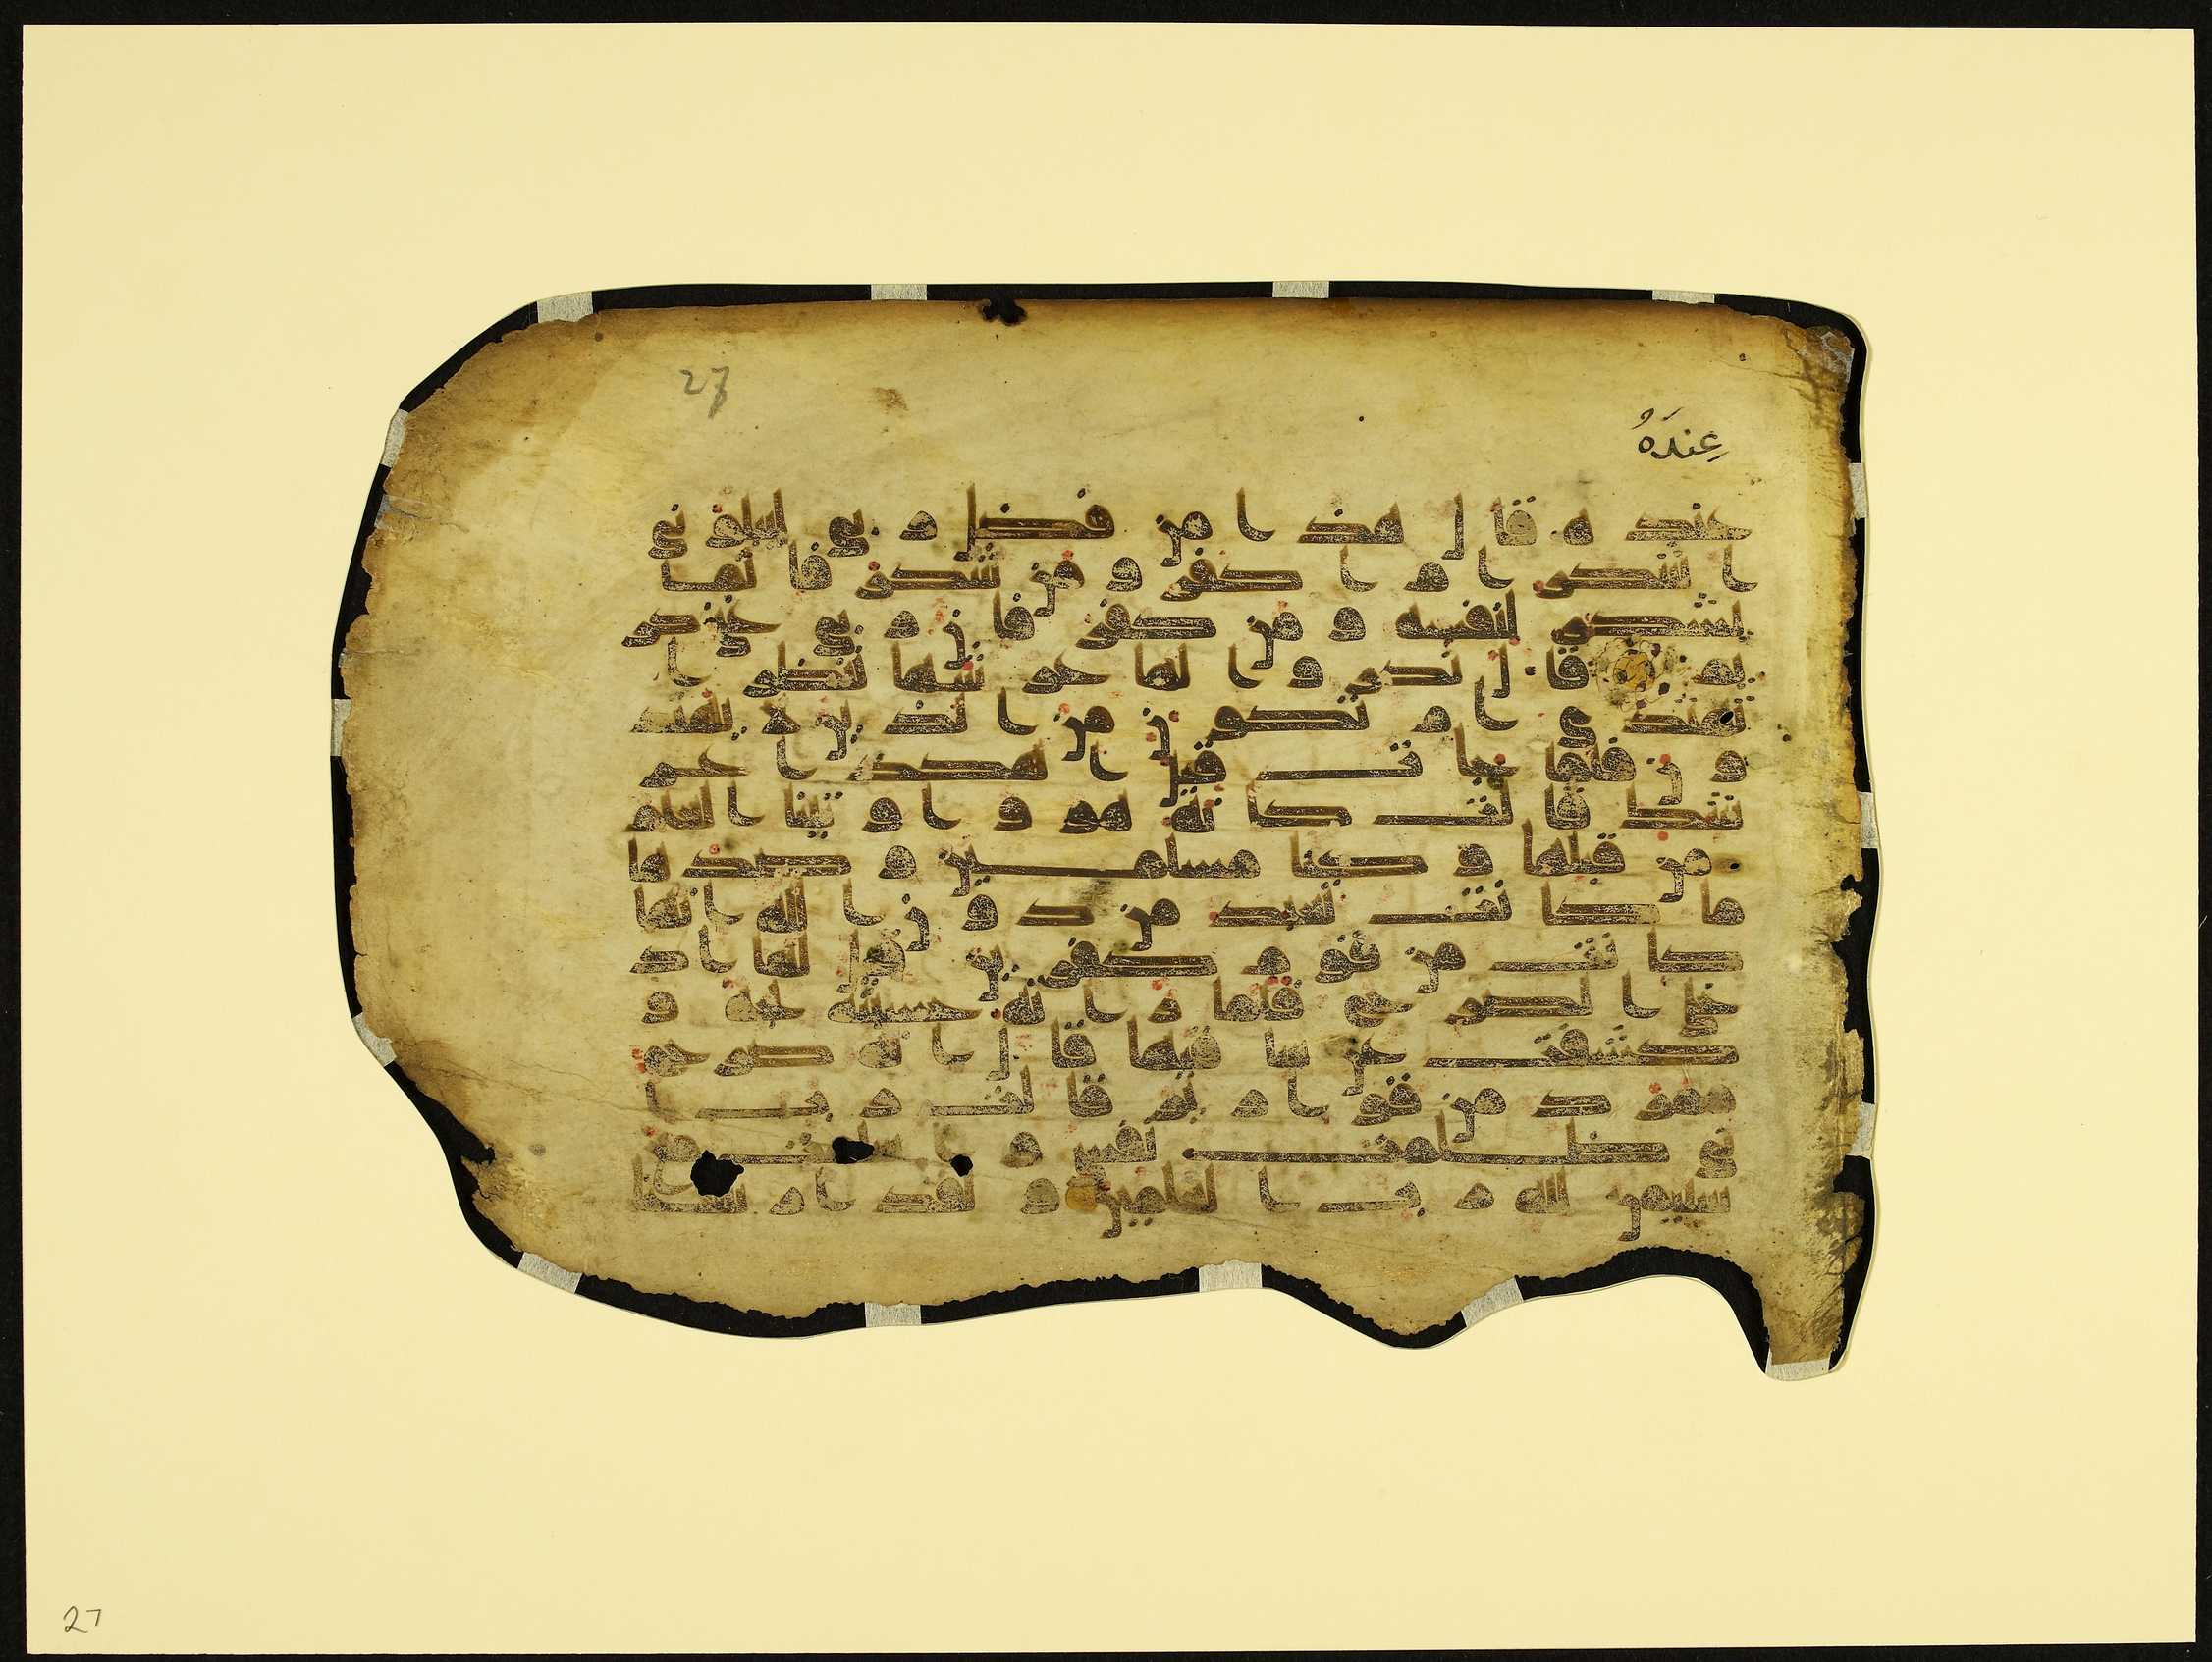 27
عِندَهُ
عنده قال هذا من فضل ربي ليبلوني
ا اشكر ام اكفر و من شكر فانما
يشكر لنفسه و من كفر فان ربي غني كر
يم قال نكروا لها عرشها ننظر ا
تهتدي ام تكون من الذين لا يهتد
ون فلما جات قيل اهكذا عر
شك قالت كانه هو و اوتينا العلم
من قبلها و كنا مسلمين و صدها
ما كانت تعبد من دون الله انها
كانت من قوم كفرين قيل لها اد
خلي الصرح فلما راته حسبته لجة و
كشفت عن ساقيها قال انه صرح
ممرد من قوارير قالت رب ا
ني ظلمت نفسي و اسلمت مع
سليمن لله رب العلمين و لقد ارسلنا
27